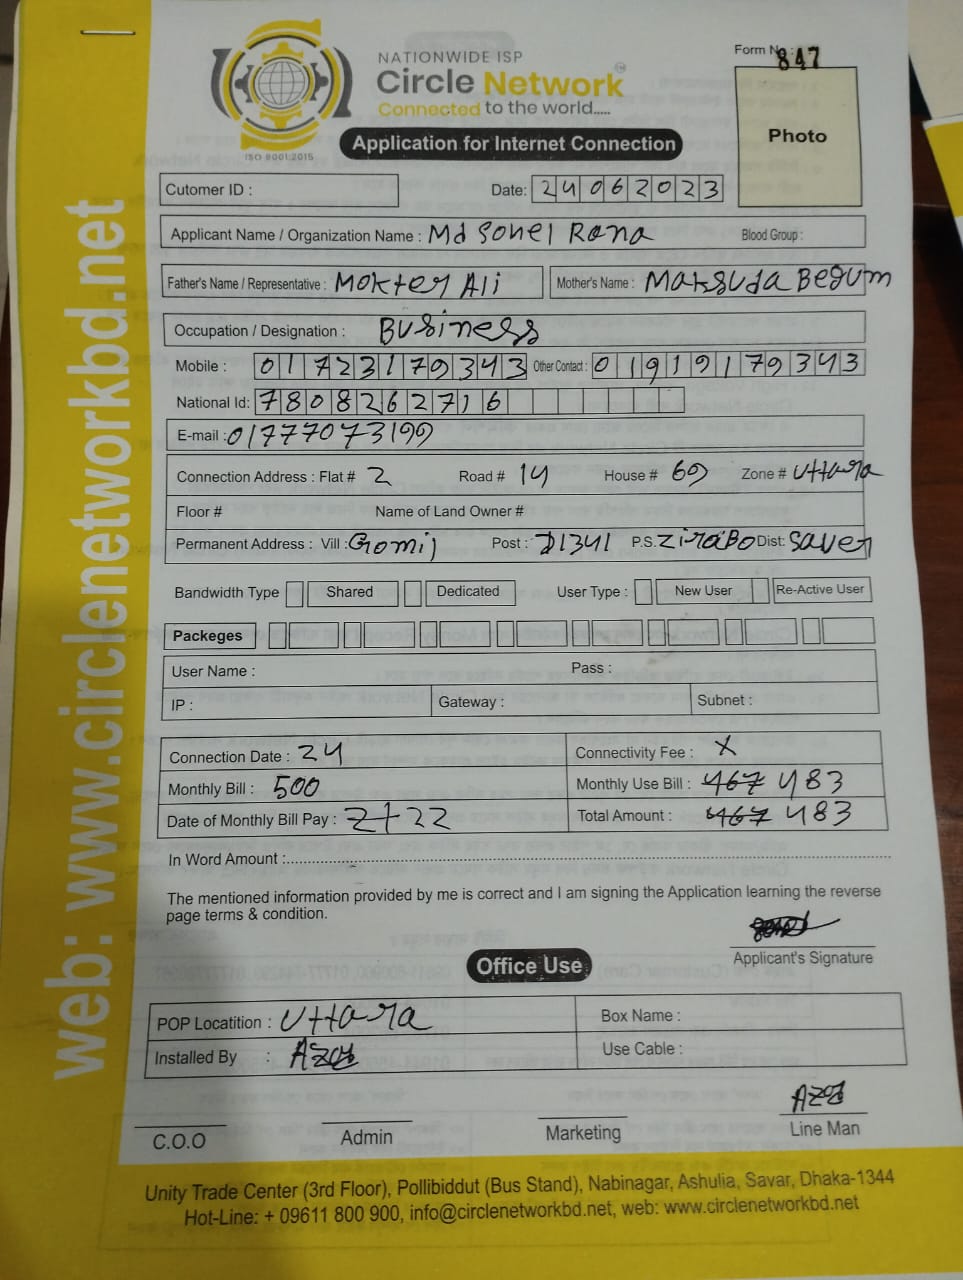 NATIONWIDE ISP
Circle Network
Connected to the world.....
ISO 9001:2015
Form No : 847
Photo
Application for Internet Connection
Cutomer ID :
Date: 24062023
Applicant Name / Organization Name : Md Sohel Rana Blood Group :
Father's Name / Representative : Mokter Ali Mother's Name : Maksuda Begum
Occupation / Designation : Business
Mobile : 01723179343 Other Contact : 01919179343
National Id: 7808262716
E-mail : 01777073199
Connection Address : Flat # 2 Road # 14 House # 69 Zone # Uttara
Floor # Name of Land Owner #
Permanent Address : Vill : Post : D1341 P.S. ZiraBo Dist: Saver
Bandwidth Type Shared Dedicated User Type : New User Re-Active User
Packeges
User Name : Pass :
IP : Gateway : Subnet :
Connection Date : 24 Connectivity Fee : X
Monthly Bill : 500 Monthly Use Bill : 467 483
Date of Monthly Bill Pay : 22 Total Amount : 467 483
In Word Amount :
The mentioned information provided by me is correct and I am signing the Application learning the reverse
page terms & condition.
Applicant's Signature
Office Use
POP Locatition : Uttara Box Name :
Installed By : Use Cable :
C.O.O Admin Marketing Line Man
Unity Trade Center (3rd Floor), Pollibiddut (Bus Stand), Nabinagar, Ashulia, Savar, Dhaka-1344
Hot-Line: + 09611 800 900, info@circlenetworkbd.net, web: www.circlenetworkbd.net
web: www.circlenetworkbd.net